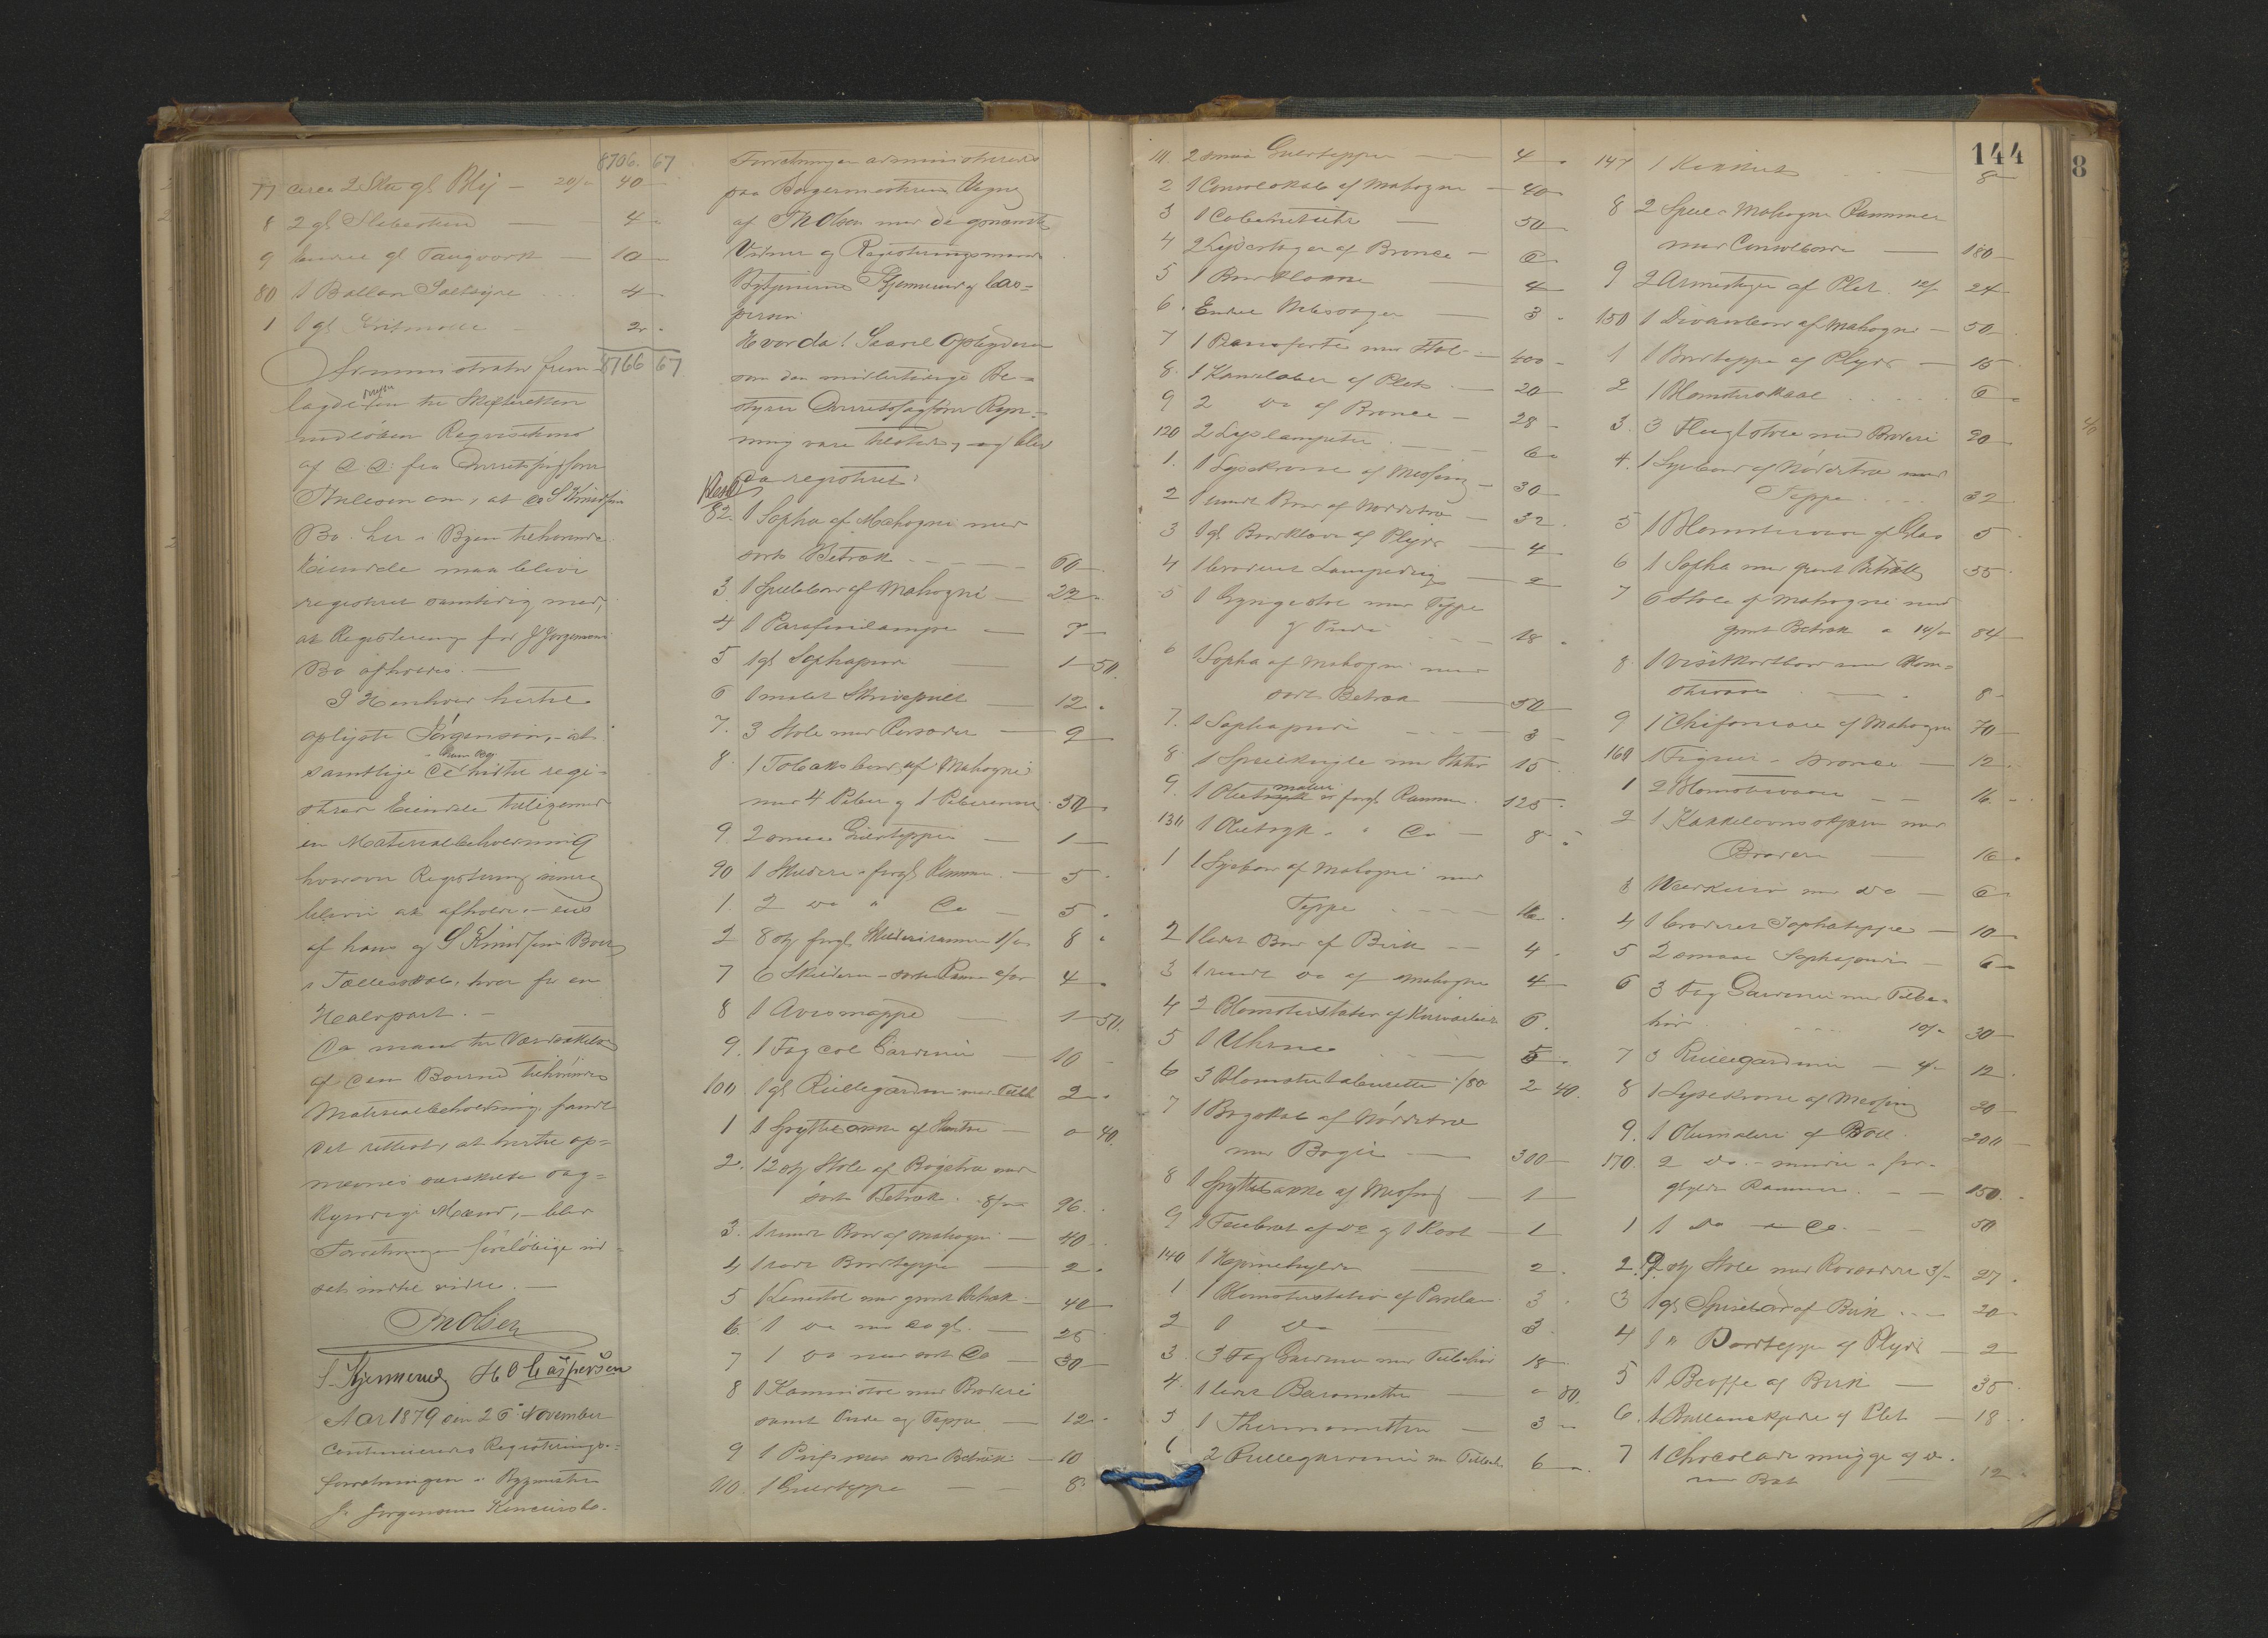 8706. 67
77 circa 2 gl Bly - 20/- 40 -
8 2 gl - 4 -
9 Endeel gl Taugværk - 10 -
80 1 Ballon - 4 -
1 1 gl - 2 -
Administrator frem- 8766 67
lagde en til Skifteretten
indløben Reqvisition
af D D: fra Overretssagfører
om, at S Knudsen
Bo her i Byen tilhørende
Eiendele maa blive
registreret samtidig med,
at Registrering for J Jørgensens
Bo afholdes. —
I Henhold hertil
oplyste Jørgensen, - at
samtlige de hidtil regi-
strerede Eiendele tilligemed
en Materialbeholdning
hvorover Registrering senere
bliver at afholde, - eies
af ham og S Knudsens Boer
i Fællesskab, hver for en
Halvpart. —
Da man til Værdsættelse
af den Boerne tilhørende
Materialbeholdning fandt
det rettest, at hertil op-
nævnes særskilte sag-
kyndige Mænd, - blev
Forretningen foreløbig ud-
sat indtil videre. —
Th Olsen
S. Kjennerud H O Caspersen
Aar 1879 den 26 November
continueredes Registrerings-
forretningen i Bygmester
J. Jørgensens Concursbo.
Forretningen administreredes
paa Borgermesterens Vegne
af Th Olsen med de opnævnte
Vidner og Registreringsmænd
Kjennerud og Cas-
persen.
Hvorda! Saavel Opbyderen
som den midlertidige Be-
styrer Overretssagfører Ryn-
ning vare tilstede, - og blev
da registreret:
82. 1 Sopha af Mahogni med
sort Betræk - 60 -
3 1 Spillebord af Mahogni - 22 -
4 1 Parafinlampe - 7 -
5 1 gl Sophapude - 1 50.
6 1 malet Skrivepult - 12 -
7. 3 Stole med Rørsæder - 9 -
8. 1 Tobaksbord af Mahogni
med 4 Piber og 1 - 30 -
9 2 smaa Gulvtepper - 1 -
90 1 Skilderi i forg. Ramme - 5 -
1. 2 do " Do - 5 -
2 8 st forg. Skilderirammer 1/- 8 -
7 6 Skilderier i sorte Rammer 4 -
8 1 Avismappe - 1 50.
9. 1 Fag col Gardiner - 10 -
100 1 gl Rullegardin med Tilbh 2 -
1 1 Spyttebakke af - " 40.
2. 12 st Stole af Bøgetræ med
sort Betræk. 8/- 96.
3. 1 rundt Bord af Mahogni - 40 -
4 1 rødt Bordteppe - 2 -
5 1 Lænestol med grønt Betræk - 40 -
6. 1 do med do gl. - 25
7 1 do med sort Do - 30 -
8 1 Kaminstol med Broderi
samt Pude og Teppe - 12 -
9 1 Puf med sort Betræk - 10
110. 1 Gulvteppe - 8 -
111. 2 smaa Gulvtepper - 4 -
2 1 Consolskab af Mahogni - 40 -
3 1 - 50 -
4 2 Lysestager af Bronce - 6 -
5 1 Bordklokke - 4 -
6. Endeel - 3 -
7 1 Pianoforte med Stol - 400 -
8. 1 Kandelaber af Plet - 20 -
9 2 do af Bronce - 28 -
120 2 Lyslampetter - 6 -
1. 1 Lysekrone af Messing - 30 -
2 1 rundt Bord af Nøddetræ - 32 -
3 1 gl Bordklæde af Plyds - 4
4 1 broderet Lampedug - 2
5 1 Gyngestol med Teppe
og Pude - 18 -
6 1 Sopha af Mahogni med
sort Betræk - 50 -
7. 1 Sophapude - 3 -
8 1 Speilkugle med Stativ 15 -
9. 1 Oliemaleri i forgl Ramme. 125 -
130 1 Olietryk i Do - 8 -
1 1 Sybord af Mahogni med
Teppe - 16 -
2 1 lidet Bord af Birk - 4 -
3 1 rundt do af Mahogni 4 -
4 2 Blomsterstativer af 6.
5 1 Uhr - 5 -
6 3 Blomstertabouretter /80 2 40.
7 1 Bogskab af Nøddetræ
med Bøger - 300 -
8 1 Spyttebakke af Messing - 1 -
9 1 Feiebret af do og 1 Kost - 1 -
140 1 Hjørnehylde - 2.
1 1 Blomsterstativ af Porselæn 3 -
2 1 do - 3.
3. 3 Fag Gardiner med Tilbehør 18 -
4. 1 lidet Barometer - " 80.
5 1 Thermometer - 3 -
6 2 Rullegardiner med Tilbeh. 6 -
144
8
147 1 - 8 -
8 2 Speile i Mahogni Rammer
med Consolborde - 180 -
9 2 Armstager af Plet. 12/- 24 -
150 1 Divanbord af Mahogni - 50
1 1 Bordteppe af Plyds - 15 -
2 1 Blomsterskaal - 6 -
3. 3 Fløistole med Broderi 90 -
4. 1 Sybord af Nøddetræ med
Teppe - 32
5 1 Blomstervase af Glas 5
6 1 Sopha med grønt Betræk 35 -
7 6 Stole af Mahogni med
grønt Betræk a 14/- 84 -
8. 1 Visitkortbord med Blom-
stervase - 8 -
9 1 Chifoniere af Mahogni 70 -
160 1 Figur i Bronce - 12 -
1 2 Blomstervaser - 16. -
2 1 Kakkelovnsskjærm med
Broderi - 16 -
3 med do - 6 -
4 1 broderet Sophateppe - 10 -
5 2 smaae Sophapuder - 6 -
6 3 Fag Gardiner med Tilbe-
hør 10/- 30 -
7 3 Rullegardiner - 4/- 12 -
8 1 Lysekrone af Messing 20 -
9. 1 Oliemaleri af 200 -
170. 2 do. - mindre i for-
gyldte Rammer. - 150. -
1 1 do - Do. 50
2. 9 st Stole med Rørsæder 3/- 27 -
3 1 gl Spisebord af Birk - 20 -
4 1 " Bordteppe af Plyds - 2
5 1 Buffe af Birk - 35 -
6. 1 af Plet - 18 -
7 1 Chocolademugge af do
med Bret - 12 -